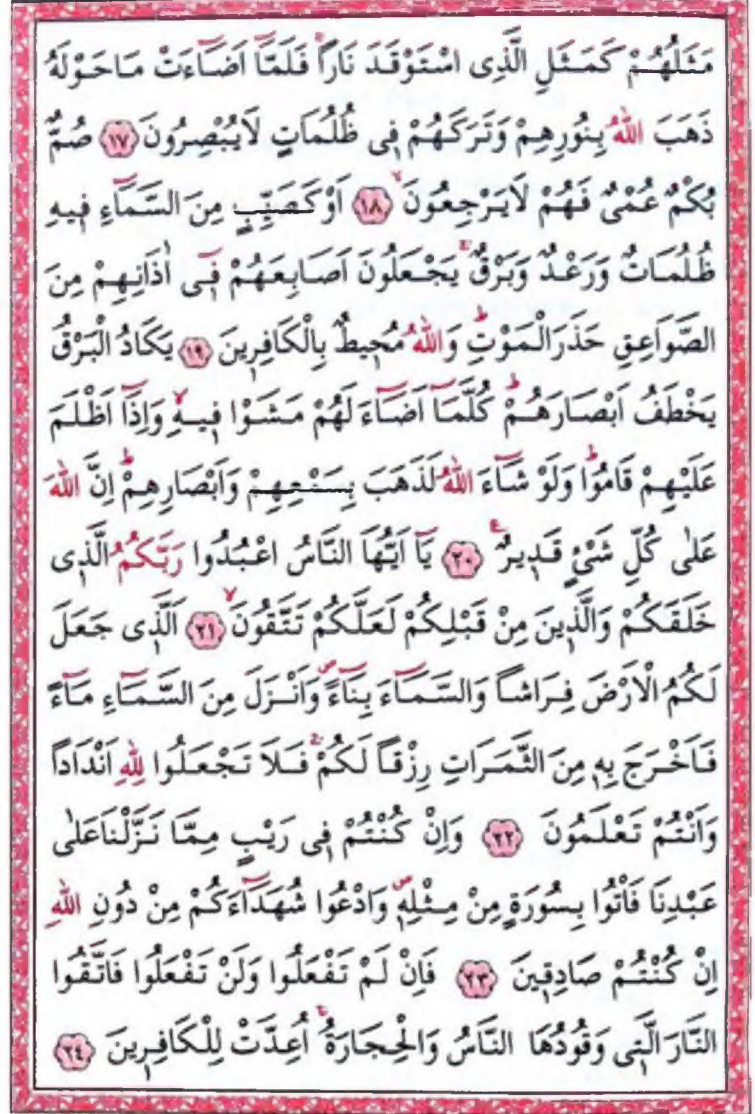 مَثَلُهُمْ كَمَثَلِ الَّذِى اسْتَوْقَدَ نَارًا فَلَمَّٓا اَضَٓاءَتْ مَاحَوْلَهُ
ذَهَبَ اللّٰهُ بِنُورِهِمْ وَتَرَكَهُمْ فِى ظُلُمَاتٍ لَايُبْصِرُونَ ﴿١٧﴾ صُمٌّ
بُكْمٌ عُمْىٌ فَهُمْ لَايَرْجِعُونَ ﴿١٨﴾ اَوْ كَصَيِّبٍ مِنَ السَّمَٓاءِ فِيهِ
ظُلُمَاتٌ وَرَعْدٌ وَبَرْقٌ يَجْعَلُونَ اَصَابِعَهُمْ فِٓى اٰذَانِهِمْ مِنَ
الصَّوَاعِقِ حَذَرَالْمَوْتِ وَاللّٰهُ مُحِيطٌ بِالْكَافِرِينَ ﴿١٩﴾ يَكَادُ الْبَرْقُ
يَخْطَفُ اَبْصَارَهُمْ كُلَّمَٓا اَضَٓاءَ لَهُمْ مَشَوْا فِيهِ وَاِذَٓا اَظْلَمَ
عَلَيْهِمْ قَامُوا وَلَوْ شَٓاءَ اللّٰهُ لَذَهَبَ بِسَمْعِهِمْ وَاَبْصَارِهِمْ اِنَّ اللّٰهَ
عَلٰى كُلِّ شَىْءٍ قَدِيرٌ ﴿٢٠﴾ يَٓا اَيُّهَا النَّاسُ اعْبُدُوا رَبَّكُمُ الَّذِى
خَلَقَكُمْ وَالَّذِينَ مِنْ قَبْلِكُمْ لَعَلَّكُمْ تَتَّقُونَ ﴿٢١﴾ اَلَّذِى جَعَلَ
لَكُمُ الْاَرْضَ فِرَاشًا وَالسَّمَٓاءَ بِنَٓاءً وَاَنْزَلَ مِنَ السَّمَٓاءِ مَٓاءً
فَاَخْرَجَ بِهِ مِنَ الثَّمَرَاتِ رِزْقًا لَكُمْ فَلَا تَجْعَلُوا لِلّٰهِ اَنْدَادًا
وَاَنْتُمْ تَعْلَمُونَ ﴿٢٢﴾ وَاِنْ كُنْتُمْ فِى رَيْبٍ مِمَّا نَزَّلْنَاعَلٰى
عَبْدِنَا فَأْتُوا بِسُورَةٍ مِنْ مِثْلِهِ وَادْعُوا شُهَدَٓاءَكُمْ مِنْ دُونِ اللّٰهِ
اِنْ كُنْتُمْ صَادِقِينَ ﴿٢٣﴾ فَاِنْ لَمْ تَفْعَلُوا وَلَنْ تَفْعَلُوا فَاتَّقُوا
النَّارَ الَّتِى وَقُودُهَا النَّاسُ وَالْحِجَارَةُ اُعِدَّتْ لِلْكَافِرِينَ ﴿٢٤﴾